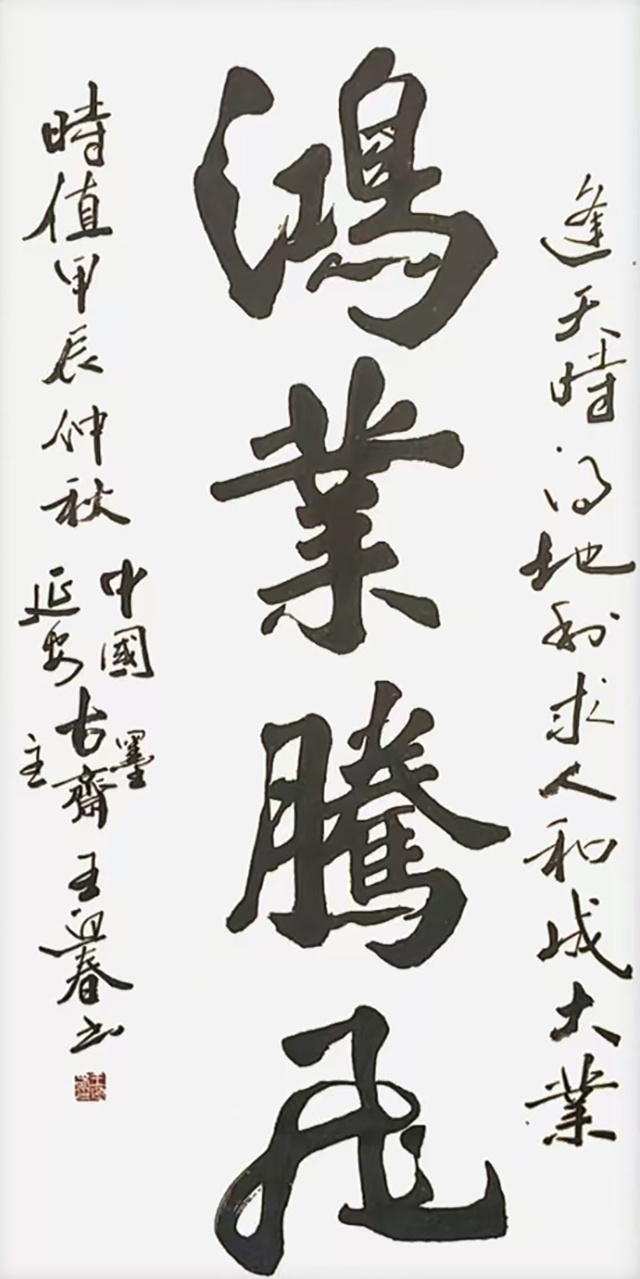 逢天時得地利求人和成大業
鴻業騰飛
時值甲辰仲秋中國延安古墨齋主王迎春书